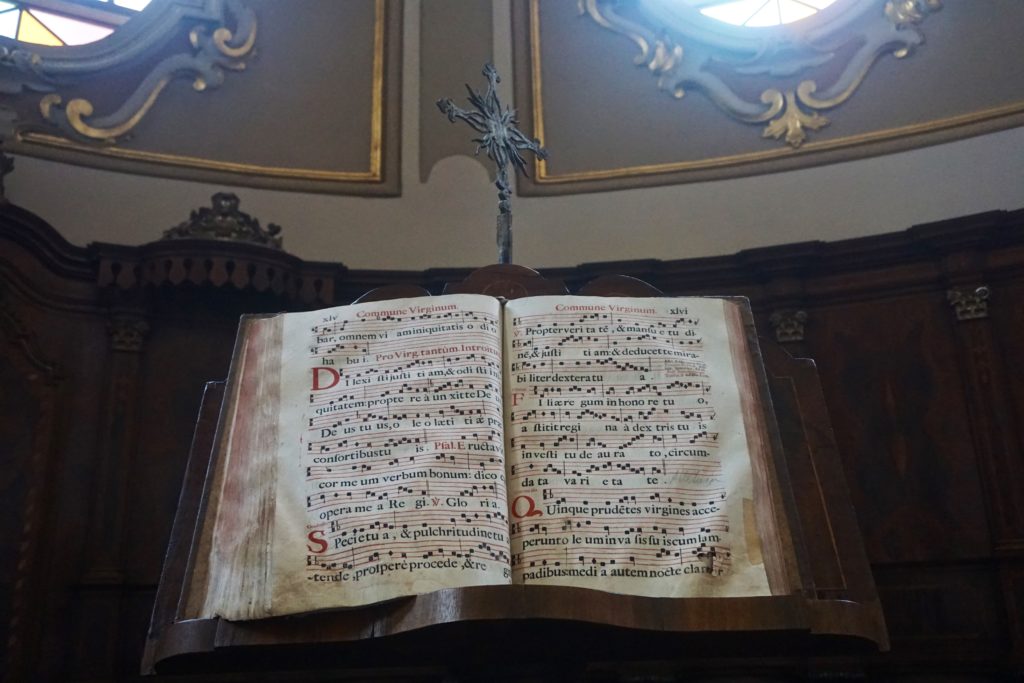 xlv Commune Virginum.
bar, omnem vi am iniquitatis o di o
ha bu i. Pro Virg. tantùm Introitus
DI lexi sti justi ti am, & odi sti Ini
quitatem: propte re à un xit te De
De us tu us, o le o læti ti æ præ
consortibus tu is. Psal. E ructavit
cor me um verbum bonum: dico e
opera me a Re gi. V. Glo ri a.
SPecie tu a, & pulchritudine tu a
tende, prosperè procede, & re
Commune Virginum. xlvi
V. Propter veri ta tē, & mansu e tu di-
nē, & justi ti am: & deducet te mira-
bi liter dextera tu a
FI liæ re gum in hono re tu o,
a stitit regi na à dex tris tu is
in vesti tu de au ra to, circum-
da ta va ri e ta te.
QUinque prudētes virgines acce-
perunt o le um in va sis su is cum lam-
padibus: medi a autem nocte clamor